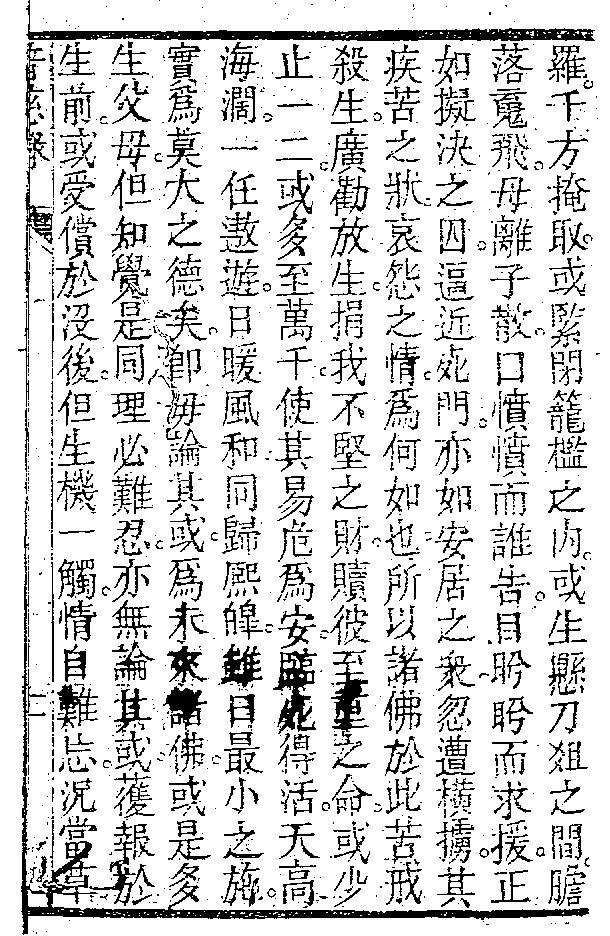 羅。千方掩取。或緊閉籠檻之內。或生懸刀俎之間。膽
落魂飛。母離子散。口憤憤而誰告。目盻盻而求援。正
如擬決之囚。逼近死門。亦如安居之衆。忽遭橫擄。其
疾苦之狀。哀怨之情。爲何如也。所以諸佛於此苦戒
殺生。廣勸放生。捐我不堅之財。贖彼至重之命。或少
止一二。或多至萬千。使其易危爲安。臨死得活。天高
海濶。一任遨遊。日暖風和。同歸熙皥。雖曰最小之施。
實爲莫大之德矣。卽毋論其或爲未來諸佛。或是多
生父母。但知覺是同。理必難忍。亦無論其或獲報於
生前。或受償於沒後。但生機一觸。情自難忘。況當